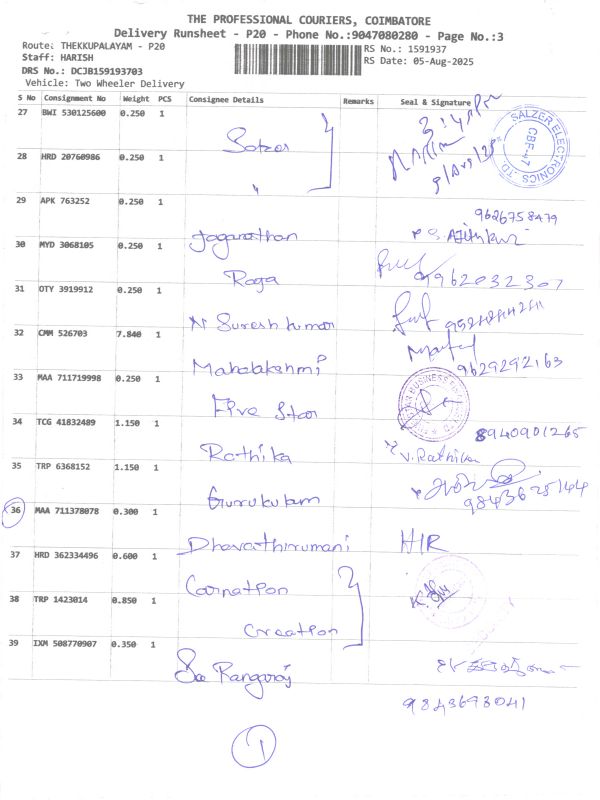 THE PROFESSIONAL COURIERS, COIMBATORE
Delivery Runsheet - P20 - Phone No.:9047080280 - Page No.:3
Route: THEKKUPALAYAM - P20
RS No.: 1591937
Staff: HARISH
RS Date: 05-Aug-2025
DRS No.: DCJB159193703
Vehicle: Two Wheeler Delivery
S No Consignment No Weight PCS Consignee Details Remarks Seal & Signature
27 BWI 530125600 0.250 1
SALZER ELECTRONICS LTD.
CBF-47
28 HRD 20760986 0.250 1
"
29 APK 763252 0.250 1
9626758479
Jaganathan
30 MYD 3068105 0.250 1
Raga 9962032307
31 OTY 3919912 0.250 1
N Suresh kumar
32 CMM 526703 7.840 1
Mahalakshmi 9629292163
33 MAA 711719998 0.250 1
Five Star
34 TCG 41832489 1.150 1
8940901265
Rathika V. Rathika
35 TRP 6368152 1.150 1
Gurukulam 9843625144
36 MAA 711378078 0.300 1
Dhavathirumani H/R
37 HRD 362334496 0.600 1
Carnation
38 TRP 1423014 0.850 1
Creation
39 IXM 508770907 0.350 1
Sri Rangaraj
9843693041
1